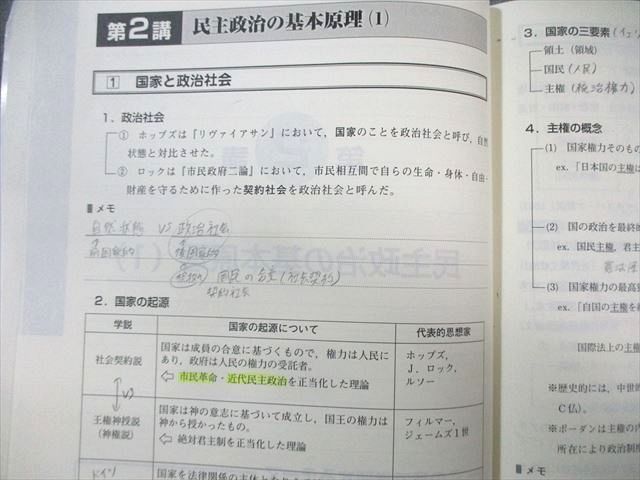 第2講 民主政治の基本原理(1)
1 国家と政治社会
1.政治社会
① ホッブズは『リヴァイアサン』において,国家のことを政治社会と呼び,自然
状態と対比させた。
② ロックは『市民政府二論』において,市民相互間で自らの生命・身体・自由・
財産を守るために作った契約社会を政治社会と呼んだ。
メモ
自然状態 VS 政治社会
前国家的 後国家的
国民の合意(社会契約)
契約社会
2.国家の起源
学説 国家の起源について 代表的思想家
社会契約説
国家は成員の合意に基づくもので,権力は人民に
あり,政府は人民の権力の受託者。
⇦ 市民革命・近代民主政治を正当化した理論
ホッブズ,
J.ロック,
ルソー
VS
王権神授説
(神権説)
国家は神の意志に基づいて成立し,国王の権力は
神から授かったもの。
⇦ 絶対君主制を正当化した理論
フィルマー,
ジェームズ1世
ドイツ
国家を法律関係の主体と
3.国家の三要素
領土(領域)
国民(人民)
主権(統治権力)
4.主権の概念
(1) 国家権力そのもの
ex.「日本国の主権は
(2) 国の政治を最終的
ex. 国民主権,君主
(3) 国家権力の最高
ex.「自国の主権を
国際法上の主権
※歴史的には,中世
C仏)。
※ボーダンは主権の
所在により政治制度
メモ